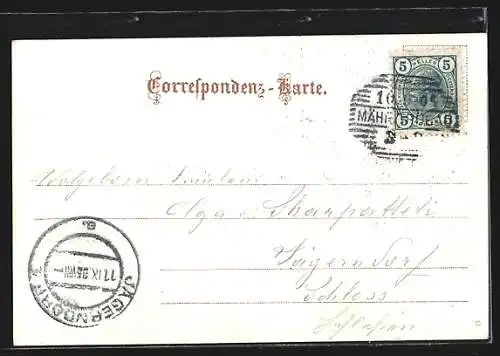 Correspondenz-Karte.
5 HELLER 5
5 5
16
MÄHR.
Wolgeboren Fräulein
Olga v.
Jägerndorf
Schloss
Schlesien
JÄGERNDORF
11 IX 05 VIII